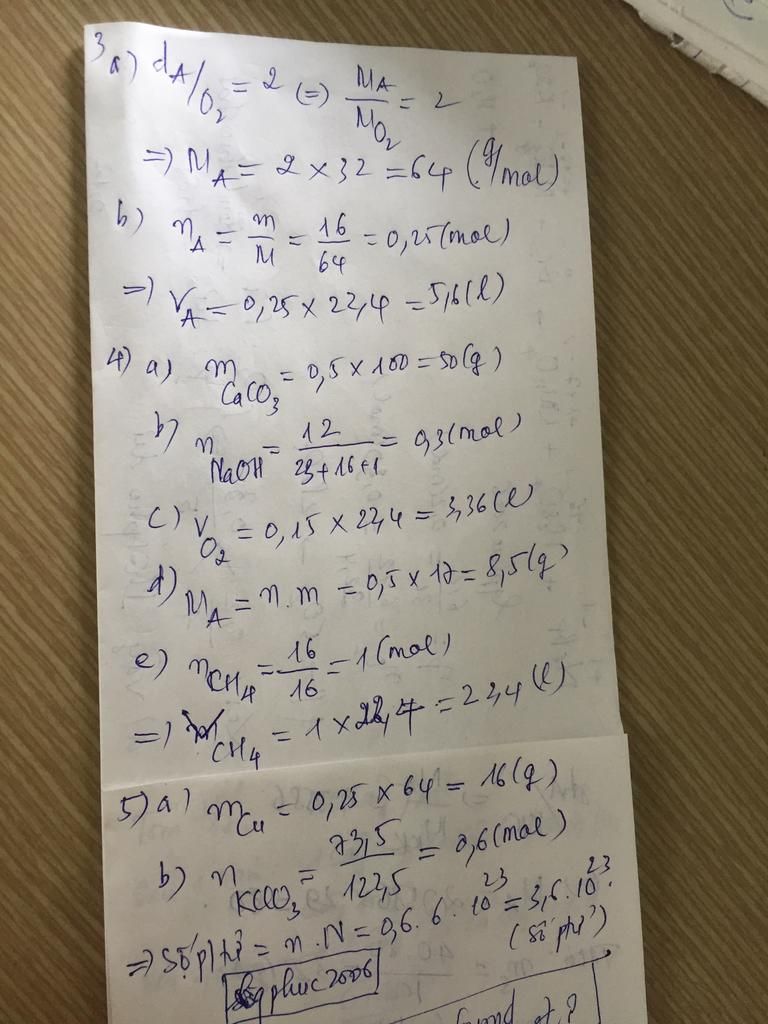 3 a) dA/O2 = 2 (=) MA/MO2 = 2
=) MA = 2 × 32 = 64 (g/mol)
b) nA = m/M = 16/64 = 0,25 (mol)
=) VA = 0,25 × 22,4 = 5,6 (l)
4) a) mCaCO3 = 0,5 × 100 = 50 (g)
b) nNaOH = 12/23+16+1 = 0,3 (mol)
c) VO2 = 0,15 × 22,4 = 3,36 (l)
d) MA = n.m = 0,5 × 17 = 8,5 (g)
e) nCH4 = 16/16 = 1 (mol)
=) CH4 = 1 × 22,4 = 22,4 (l)
5) a) mCu = 0,25 × 64 = 16 (g)
b) nKClO3 = 73,5/122,5 = 0,6 (mol)
=) Số ptử = n.N = 0,6.6.10^23 = 3,6.10^23.
(số ptử)
phuc2006